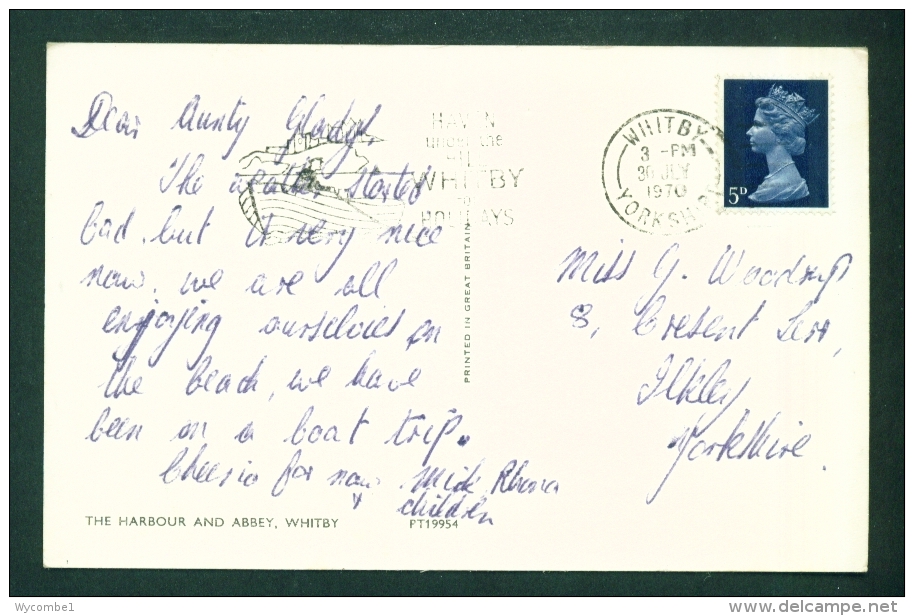 Dear Aunty Gladys!
The weather started
bad, but it very nice
now. we are all
enjoying ourselves on
the beach, we have
been on a boat trip.
Cheerio for now Mick Rhona
+ children
THE HARBOUR AND ABBEY, WHITBY
PT19954
PRINTED IN GREAT BRITAIN
HAVEN
under the
HILL
WHITBY
HOLIDAYS
WHITBY
3 - PM
30 JLY
1970
YORKSHIRE
5D
Miss G. Woodrup
8, Cresent Terr,
Ilkley
Yorkshire.
Wycombe1
delcampe.net